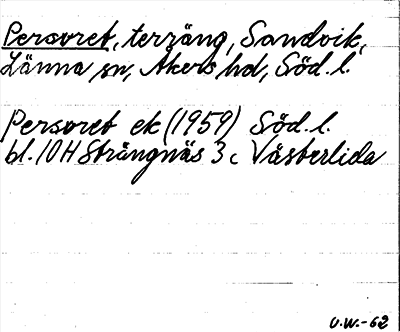 Persvret, terräng, Sandvik,
Länna sn, Åkers hd, Söd.l.
Persvret ek (1959) Söd.l.
bl. 10H Strängnäs 3c Västerlida
U.W.-62